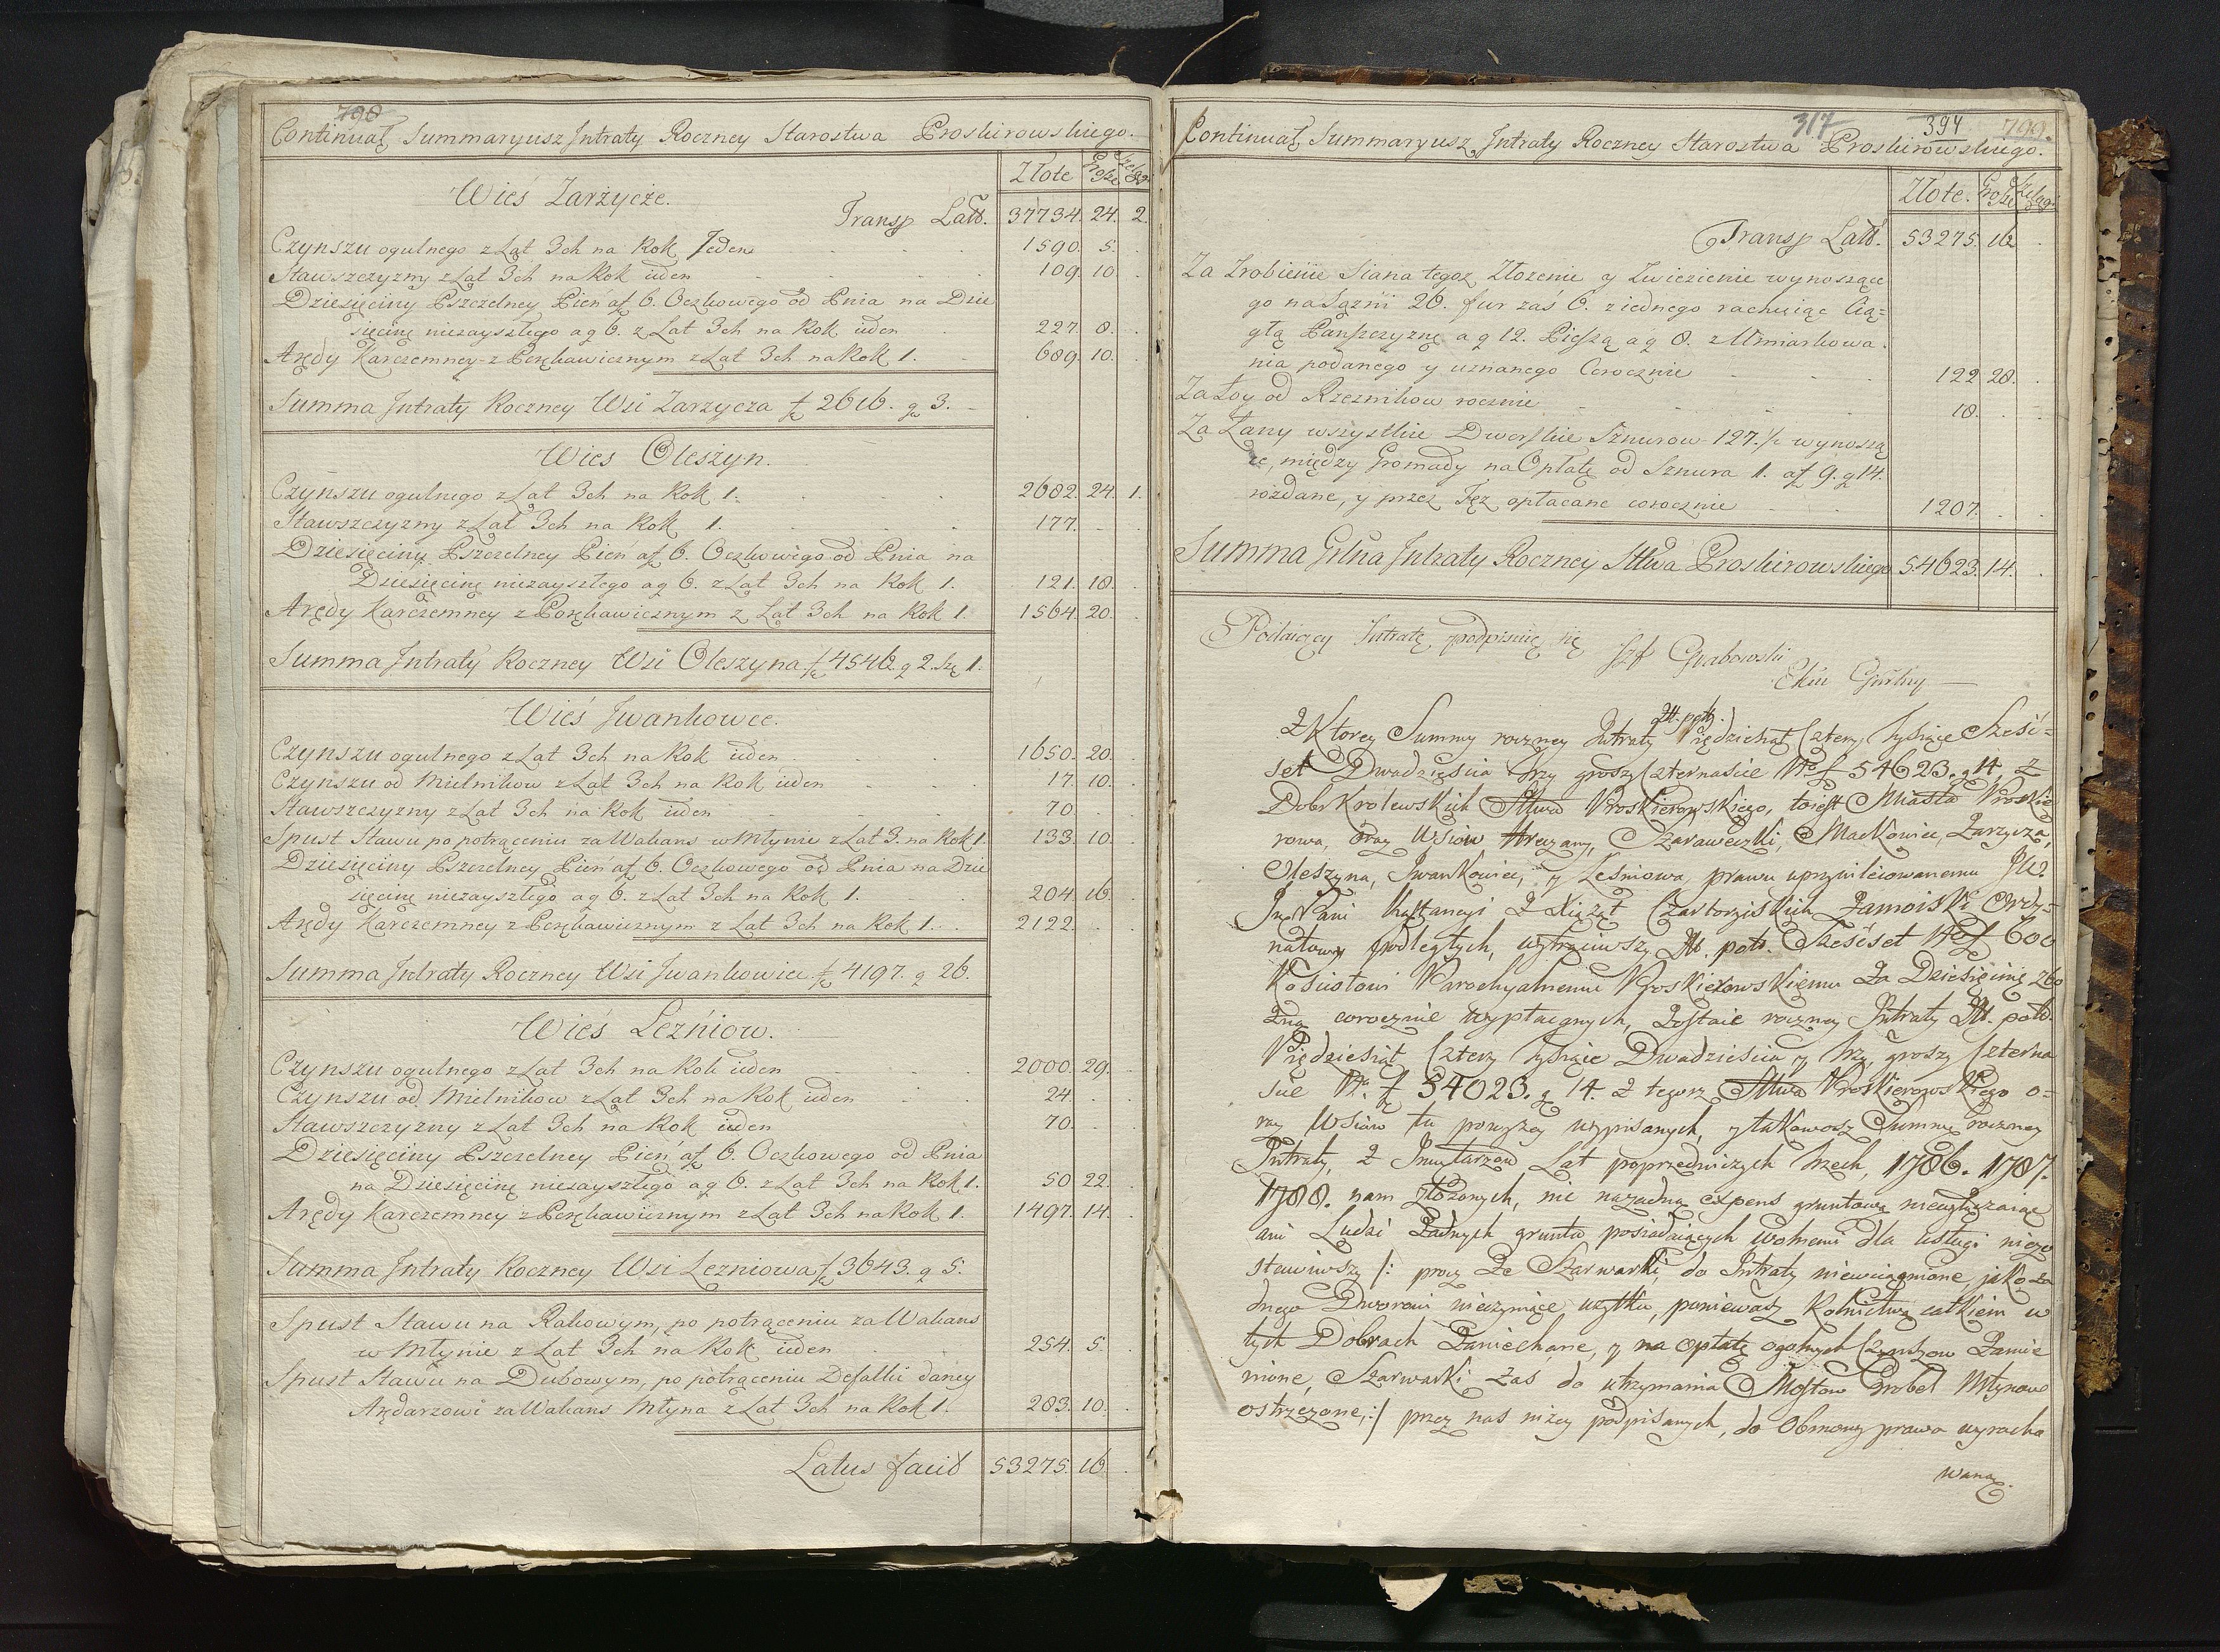 798
Continuat Summaryusz Jntraty Roczney Starostwa Proskirowskiego.
Złote Grosze Szelągi
Wieś Zarżycze.
Transp Latt. 37734. 24. 2
Czynszu ogulnego z Lat 3ch na Rok Jeden 1590. 5.
Stawszczyzny z Lat 3ch na Rok ieden 109. 10.
Dziesięciny Pszczelney Pień af 6. Oczkowego od Pnia na Dzie
sięcinę niezayszłego a g 6. z Lat 3ch na Rok ieden 227. 8.
Arędy Karczemney z Poręhawicznym z Lat 3ch na Rok 1. 689. 10.
Summa Jntraty Roczney Wsi Zarzycza f 2616. g 3.
Wieś Oleszyn.
Czynszu ogulnego z Lat 3ch na Rok 1. 2682. 24. 1.
Stawszczyzny z Lat 3ch na Rok 1. 177.
Dziesięciny Pszczelney Pień af 6. Oczkowego od Pnia na
Dziesięcinę niezayszłego a g 6. z Lat 3ch na Rok 1. 121. 18.
Arędy Karczemney z Poręhawicznym z Lat 3ch na Rok 1. 1564. 20.
Summa Jntraty Roczney Wsi Oleszyna f 4546. g 2. Szę 1.
Wieś Jwankowce.
Czynszu ogulnego z Lat 3ch na Rok ieden 1650. 20.
Czynszu od Mielnikow z Lat 3ch na Rok ieden 17. 10.
Stawszczyzny z Lat 3ch na Rok ieden 70
Spust Stawu po potrąceniu za Wakans w Młynie z Lat 3. na Rok 1. 133. 10.
Dziesięciny Pszczelney Pień af 6. Oczkowego od Pnia na Dzie
sięcinę niezayszłego a g 6. z Lat 3ch na Rok 1. 204. 16.
Arędy Karczemney z Poręhawicznym z Lat 3ch na Rok 1. 2122.
Summa Jntraty Roczney Wsi Jwankowiec f 4197. g 26.
Wieś Leźniow.
Czynszu ogulnego z Lat 3ch na Rok ieden 2000. 29.
Czynszu od Mielnikow z Lat 3ch na Rok ieden 24
Stawszczyzny z Lat 3ch na Rok ieden 70
Dziesięciny Pszczelney Pień af 6. Oczkowego od Pnia
na Dziesięcinę niezayszłego a g 6. z Lat 3ch na Rok 1. 50 22.
Arędy Karczemney z Poręhawicznym z Lat 3ch na Rok 1. 1497. 14.
Summa Jntraty Roczney Wsi Lezniowa f 3643. g 5.
Spust Stawu na Rakowym, po potrąceniu za Wakans
w Młynie z Lat 3ch na Rok ieden 254. 5.
Spust Stawu na Dubowym, po potrąceniu Defalki daney
Arędarzowi za Wakans Młyna z Lat 3ch na Rok 1. 283. 10.
Latus facit 53275. 16.
317 394 799.
Continuat Summaryusz Jntraty Roczney Starostwa Proskirowskiego.
Złote. Grosze Szelągi
Transp Latt. 53275. 16
Za Zrobienie Siana tegoz Złozenie y Zwiezienie wynoszące
go na Sązni 26. fur zaś 6. z iednego rachuiąc Cią=
głą Panszczyznę a g 12. Pieszą a g 8. z Umiarkowa
nia podanego y uznanego Corocznie 122. 28.
Za Łoy od Rzeznikow rocznie 18.
Za Łany wszystkie Dworskie Sznurow 127.½ wynoszą
ce, między Gromady na Opłatę od Sznura 1. af 9. g 14.
rozdane, y przez Tęz opłacane corocznie 1207.
Summa Glna Jntraty Roczney Sttwa Proskirowskiego 54623. 14.
Podaiący Intratę podpisuię się
Jzf Grabowski
Z Ktorey Summy roczney Jntraty Zlt. polk. Pięćdziesiąt Cztery Tysiące Sześć=
set Dwadzieścia Trzy groszy Czternaście No f 54623. g 14. z
Dobr Krolewskich Sttwa Proskierowskiego, toiest Miasta Proskie
rowa, oraz Wsiow Hreczany, Szaraweczki, Mackowiec, Zarzycza,
Oleszyna, Jwankowiec, y Leśniowa, prawu uprzywileiowanemu JW.
Jmć Pani Konstancyi z Xiążąt Czartoryiskich Zamoiski Ordy=
natowy podległych, wytrąciwszy Zlt. polk. Sześćset No f 600
Kościołowi Parochyalnemu Proskierowskiemu Za Dziesięcinę zbo
żną corocznie wypłacanych, Zostaie roczney Jntraty Zlt. polk.
Pięćdziesiąt Cztery Tysiące Dwadzieścia y Trzy groszy Czterna
ście No. f 54023. g 14. z tegoz Sttwa Proskierowskiego o=
raz Wsiow tu powyzey wypisanych, y takowosz Summę roczney
Jntraty, z Jnwentarzow Lat poprzedniczych Trzech, 1786. 1787.
1788. nam złożonych, nic na zadną expens gruntową nieubliżaiąc
ani Ludzi Żadnych grunta posiadaiących wolnemi dla usługi niezo
stawiwszy /: procz Że Szarwarki, do Jntraty niewciągnione, jako ża
dnego Dworowi nieczyniące użytku, poniewasz Rolnictwo całkiem w
tych Dobrach Zaniechane, y na opłatę ogolnych Czynszow Zamie
nione, Szarwarki Zaś do utrzymania Mostow Grobel Młynow
ostrzezone, :/ przez nas niżey podpisanych, do Obmowy prawa wyracho
waną.